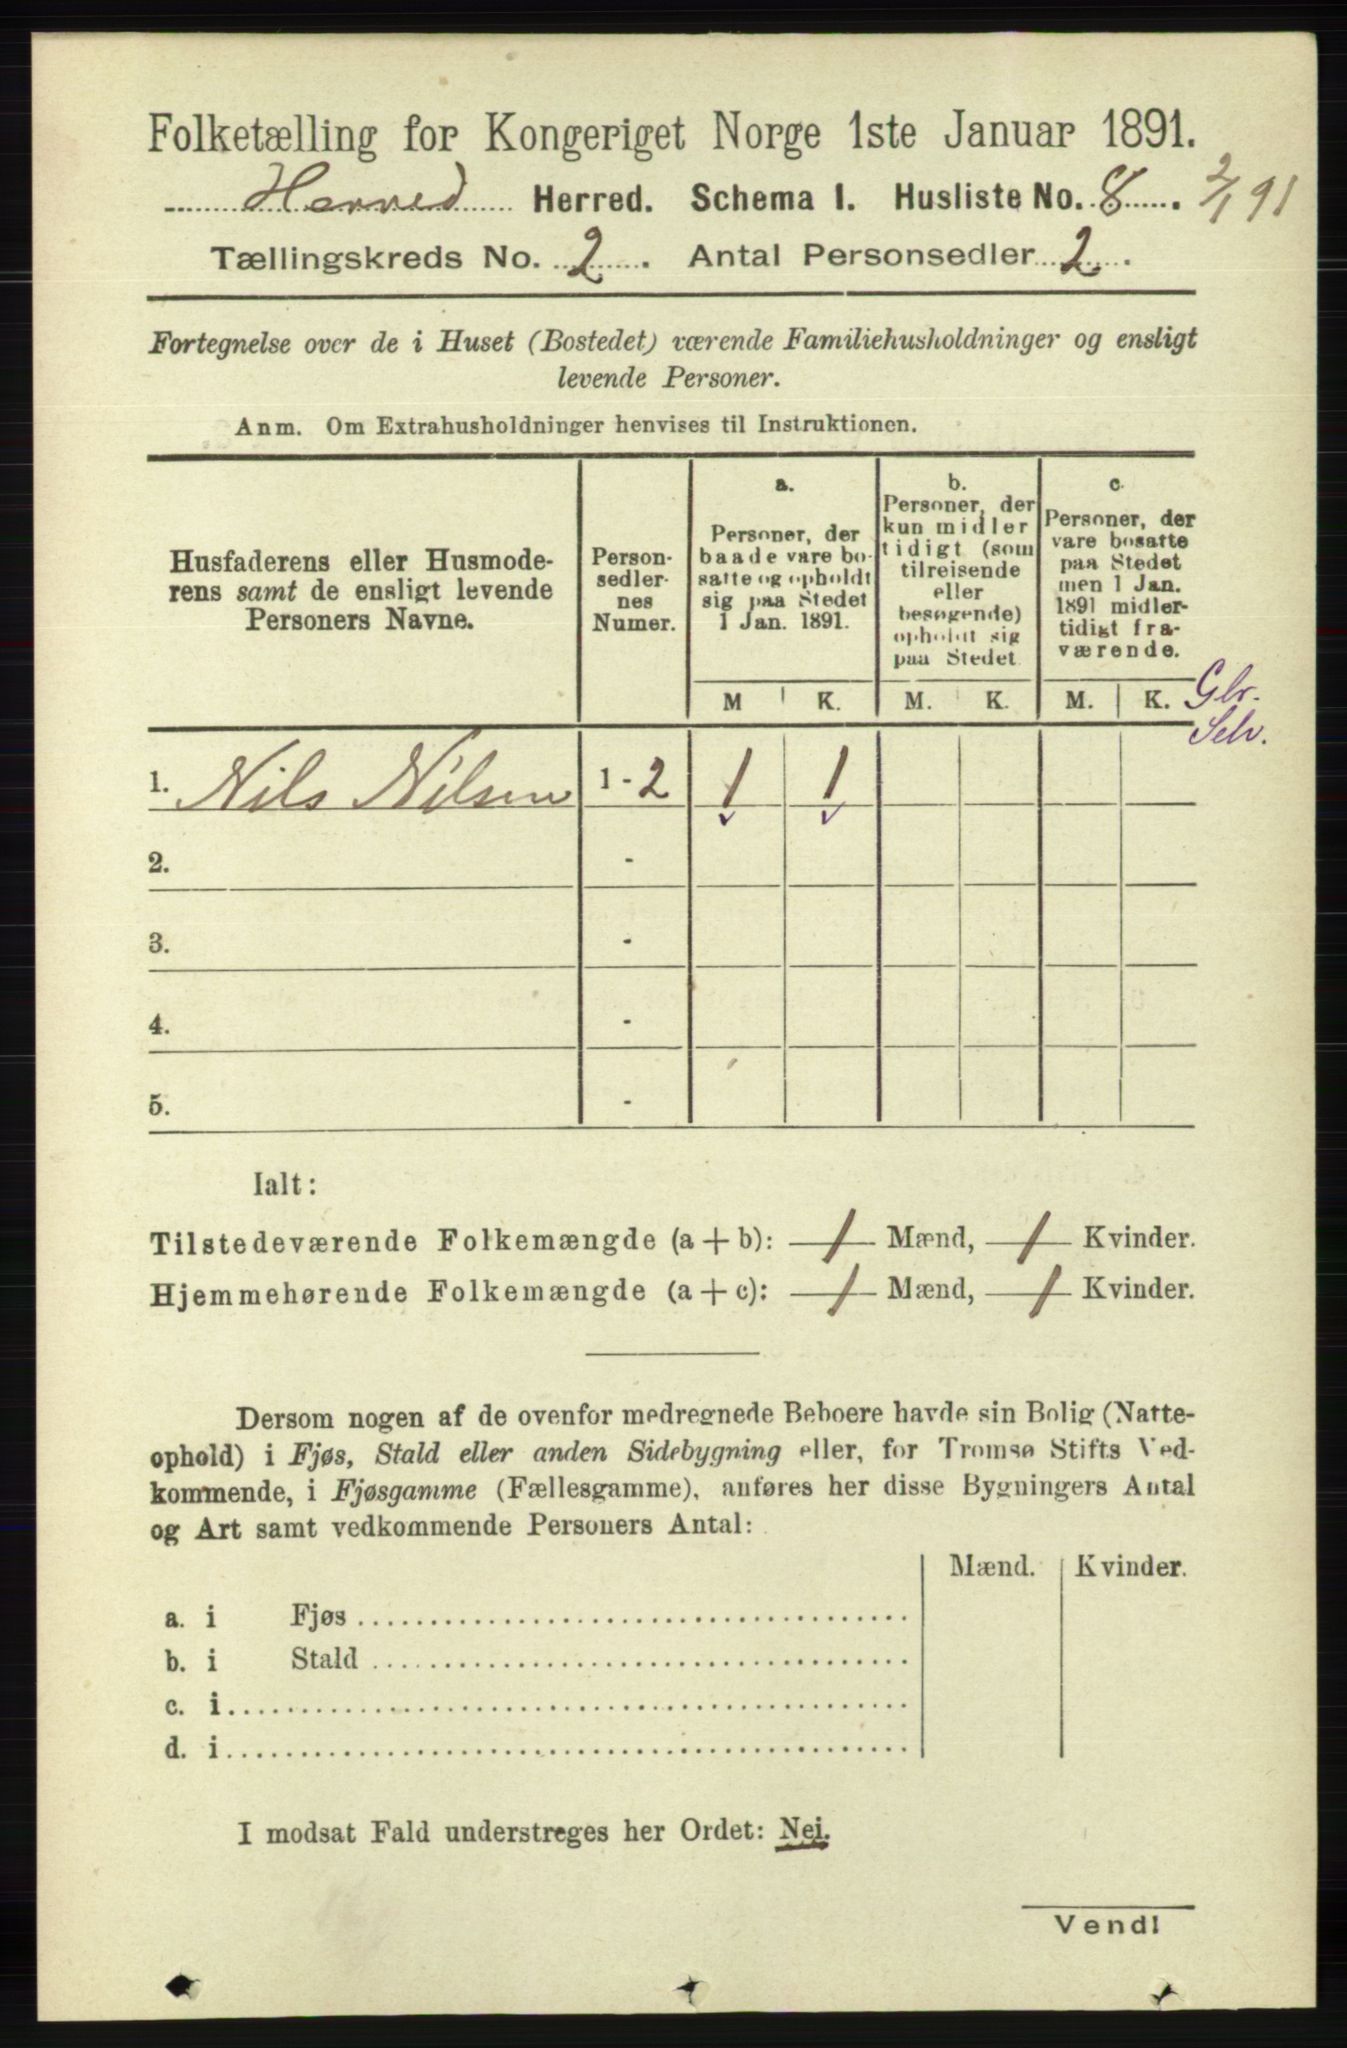 Folketælling for Kongeriget Norge 1ste Januar 1891.
Herred Herred. Schema I. Husliste No. 8. 2/1 91
Tællingskreds No. 2. Antal Personsedler 2.
Fortegnelse over de i Huset (Bostedet) værende Familiehusholdninger og ensligt
levende Personer.
Anm. Om Extrahusholdninger henvises til Instruktionen.
Husfaderens eller Husmode-
rens samt de ensligt levende
Personers Navne.
Person-
sedler-
nes
Numer.
a.
Personer, der
baade vare bo-
satte og opholdt
sig paa Stedet
1 Jan. 1891.
b.
Personer, der
kun midler
tidigt (som
tilreisende
eller
besøgende)
opholdt sig
paa Stedet.
c.
Personer, der
vare bosatte
paa Stedet
men 1 Jan.
1891 midler-
tidigt fra-
værende.
M K. M. K. M. K. Gbr.
Selv.
1. Nils Nilsen 1 - 2 1 1
2. -
3. -
4. -
5. -
Ialt:
Tilstedeværende Folkemængde (a + b): 1 Mænd, 1 Kvinder.
Hjemmehørende Folkemængde (a + c): 1 Mænd, 1 Kvinder.
Dersom nogen af de ovenfor medregnede Beboere havde sin Bolig (Natte-
ophold) i Fjøs, Stald eller anden Sidebygning eller, for Tromsø Stifts Ved-
kommende, i Fjøsgamme (Fællesgamme), anføres her disse Bygningers Antal
og Art samt vedkommende Personers Antal:
Mænd. Kvinder.
a. i Fjøs
b. i Stald
c. i
d. i
I modsat Fald understreges her Ordet: Nei.
Vend!